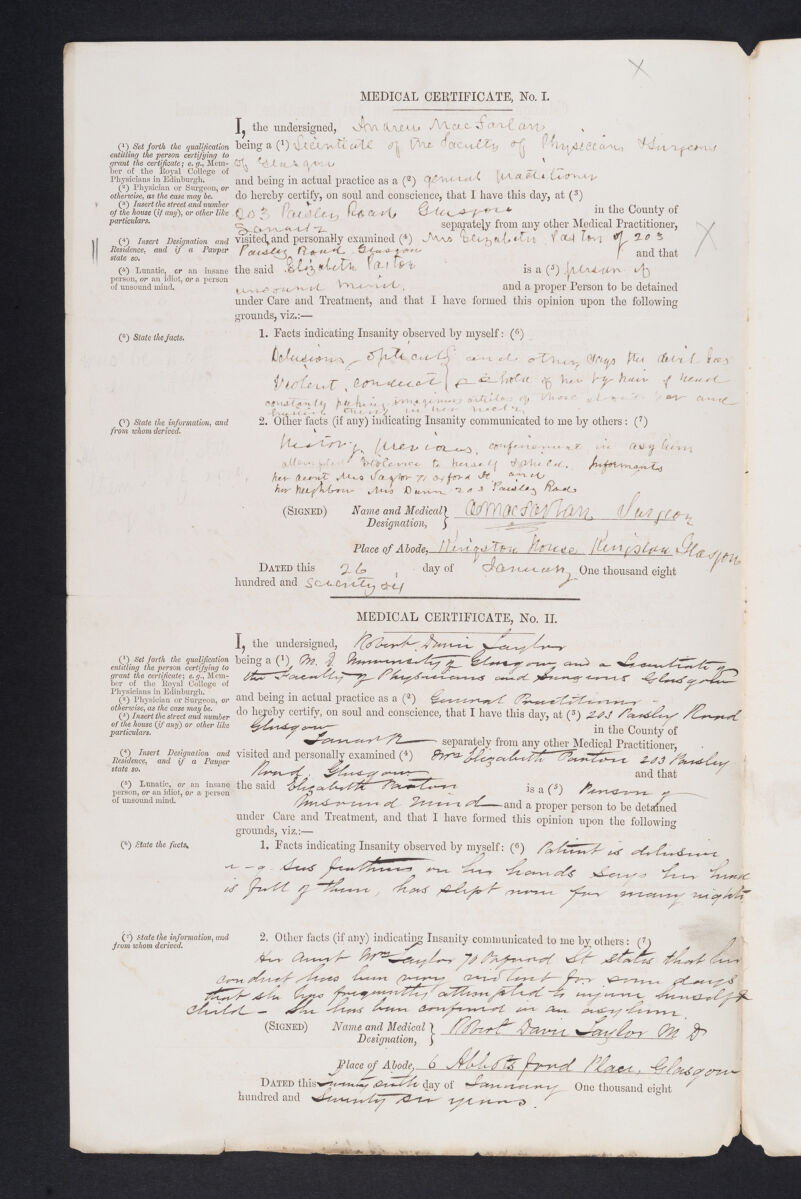 MEDICAL CERTIFICATE, No. I.
I, the undersigned, Andrew MacFarlan
being a (1) Licentiate of the Faculty of Physicians & Surgeons
of Glasgow
and being in actual practice as a (2) general practitioner
do hereby certify, on soul and conscience, that I have this day, at (3)
203 Paisley Road Glasgow in the County of
Lanark separately from any other Medical Practitioner,
visited and personally examined (4) Mrs Elizabeth Paxton of 203
Paisley Road Glasgow and that
the said Elizabeth Paxton is a (5) person of
unsound mind. and a proper Person to be detained
under Care and Treatment, and that I have formed this opinion upon the following
grounds, viz.:—
(1) Set forth the qualification
entitling the person certifying to
grant the certificate; e. g., Mem-
ber of the Royal College of
Physicians in Edinburgh.
(2) Physician or Surgeon, or
otherwise, as the case may be.
(3) Insert the street and number
of the house (if any), or other like
particulars.
(4) Insert Designation and
Residence, and if a Pauper
state so.
(5) Lunatic, or an insane
person, or an idiot, or a person
of unsound mind.
(6) State the facts.
1. Facts indicating Insanity observed by myself: (6)
Delusions, optical & other, says the devil has
Violent conduct hold of her by hair of head
constantly picking imaginary articles and
(7) State the information, and
from whom derived.
2. Other facts (if any) indicating Insanity communicated to me by others: (7)
History, previous confinement in asylum
attempted violence to herself & child. Informants
her aunt Mrs Taylor 71 Oxford St and
her neighbour Mrs Dunn 203 Paisley Road
(SIGNED) Name and Medical Designation, A MacFarlan Surgeon
Place of Abode, Kingston House Kingston Glasgow
DATED this 26 day of January One thousand eight
hundred and seventy six
MEDICAL CERTIFICATE, No. II.
I, the undersigned, Robert Davie Taylor
being a (1) M. D University of Glasgow and a Licentiate of
the Faculty of Physicians and Surgeons Glasgow
and being in actual practice as a (2) General Practitioner
do hereby certify, on soul and conscience, that I have this day, at (3) 203 Paisley Road
Glasgow in the County of
Lanark separately from any other Medical Practitioner,
visited and personally examined (4) Mrs Elizabeth Paxton 203 Paisley
Road Glasgow and that
the said Elizabeth Paxton is a (5) Person of
Unsound Mind and a proper person to be detained
under Care and Treatment, and that I have formed this opinion upon the following
grounds, viz.:—
(1) Set forth the qualification
entitling the person certifying to
grant the certificate; e. g., Mem-
ber of the Royal College of
Physicians in Edinburgh.
(2) Physician or Surgeon, or
otherwise, as the case may be.
(3) Insert the street and number
of the house (if any) or other like
particulars.
(4) Insert Designation and
Residence, and if a Pauper
state so.
(5) Lunatic, or an insane
person, or an idiot, or a person
of unsound mind.
(6) State the facts.
1. Facts indicating Insanity observed by myself: (6) Patient is delusive
sees feathers on her hands says her head
is full of them, has slept none for many nights
(7) State the information, and
from whom derived.
2. Other facts (if any) indicating Insanity communicated to me by others: (7)
Her Aunt Mrs Taylor 71 Oxford St states that her
conduct has been very violent for some days
that she has frequently attempted to injure herself &
child - She has been confined in an asylum.
(SIGNED) Name and Medical Designation, Robert Davie Taylor M D
Place of Abode, 6 Abbotsford Place, Glasgow
DATED this twenty sixth day of January One thousand eight
hundred and Seventy six years.